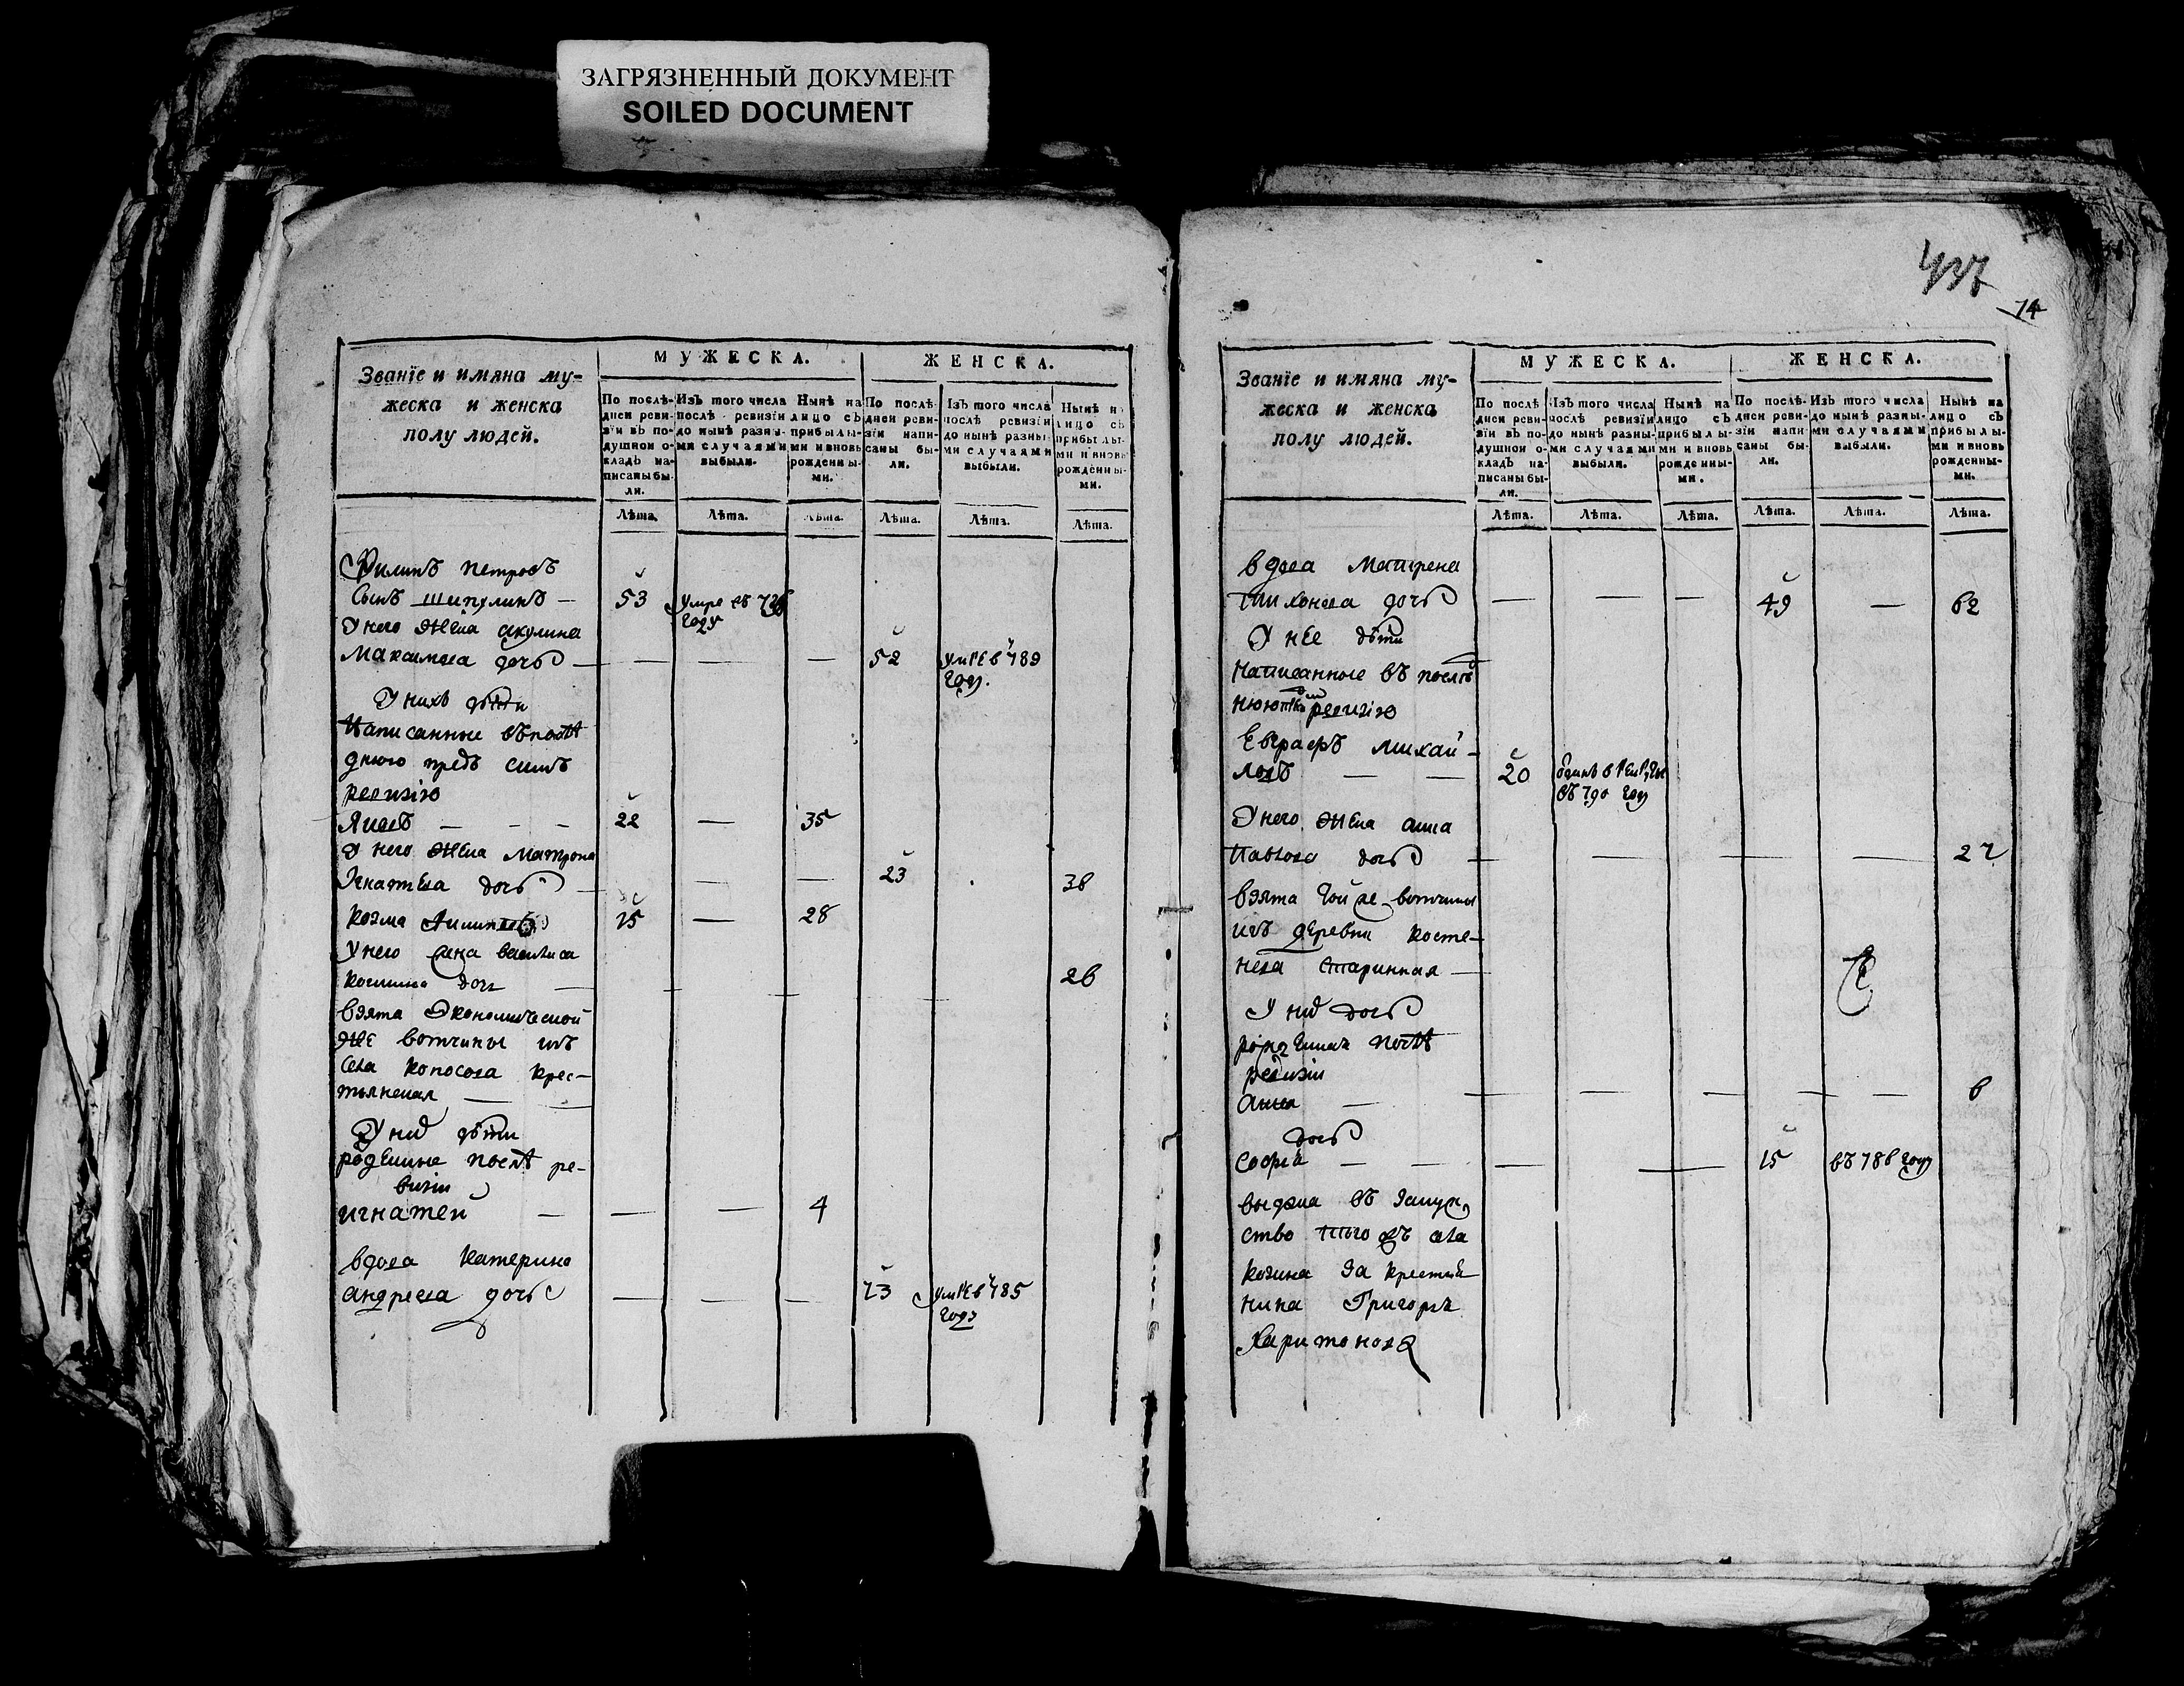 ЗАГРЯЗНЕННЫЙ ДОКУМЕНТ
SOILED DOCUMENT
Званїе и имяна му-
жеска и женска
полу людей.
МУЖЕСКА.
ЖЕНСКА.
По послѣ-
дней реви-
зїи въ по-
душной о-
кладъ на-
писаны бы-
ли.
Изъ того числа
послѣ ревизїи
до нынѣ разны-
ми случаями
выбыли.
Нынѣ на
лицо съ
прибылы-
ми и вновь
рожденны-
ми.
По послѣ-
дней реви-
зїи напи-
саны бы-
ли.
Изъ того числа
послѣ ревизїи
до нынѣ разны-
ми случаями
выбыли.
Нынѣ н
лицо съ
прибылы-
ми и вновь
рожденны-
ми.
Лѣта. Лѣта. Лѣта. Лѣта. Лѣта. Лѣта.
Филипъ петровъ
сынъ шипулинъ — 53 умре въ году
У него жена акулина
Максимова дочь — — — — 52 умре в 789
году.
У нихъ дѣти
Написанные въ послѣ
днюю предъ симъ
ревизїю
Яковъ — — — 22 — 35
У него жена Матрона
Игнатева дочь — — — 23 38
козма 15 — 28
У него жена василиса
козмина дочь — 26
взята Экономической
же вотчины изъ
села копосова крес-
тьянская — —
У них дѣти
рожденные послѣ ре-
визїи
игнатей — — — 4
вдова катерина
андреева дочь — — — 73 умре в 785
году
437
14
Званїе и имяна му-
жеска и женска
полу людей.
МУЖЕСКА.
ЖЕНСКА.
По послѣ
дней реви-
зїи въ по-
душной о-
кладъ на-
писаны бы-
ли.
Изъ того числа
послѣ ревизїи
до нынѣ разны-
ми случаями
выбыли.
Нынѣ на
лицо съ
прибылы-
ми и вновь
рожденны-
ми.
По послѣ-
дней реви-
зїи напи-
саны бы-
ли.
Изъ того числа
до нынѣ разны-
ми случаями
выбыли.
Нынѣ на
лицо съ
прибылы-
ми и вновь
рожденны-
ми.
Лѣта. Лѣта. Лѣта. Лѣта. Лѣта. Лѣта.
вдова Матрена
тихонова дочь — — — 49 — 62
У нее дѣти
написанные въ послѣд
нюю ревизїю
Евграфъ михай-
ловъ — — 20 в рекруты
въ 790 году
У него жена анна
Павлова дочь — — — — 27
взята той же вотчины
изъ деревни косте-
нева старинная —
У них дочь
рожденная послѣ
ревизїи
анна — — — — — — 6
дочь
софья — — — — 15 въ 786 году
выдана въ замуж
ство того жъ села
козина за крестья
нина Григорья
Харитонова